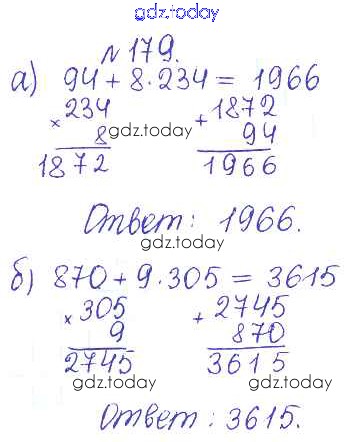 gdz.today
№ 179.
а) 94 + 8 · 234 = 1966
× 234
8
1872
+ 1872
94
1966
gdz.today
gdz.today
Ответ: 1966.
gdz.today
б) 870 + 9 · 305 = 3615
× 305
9
2745
+ 2745
870
3615
gdz.today
gdz.today
Ответ: 3615.